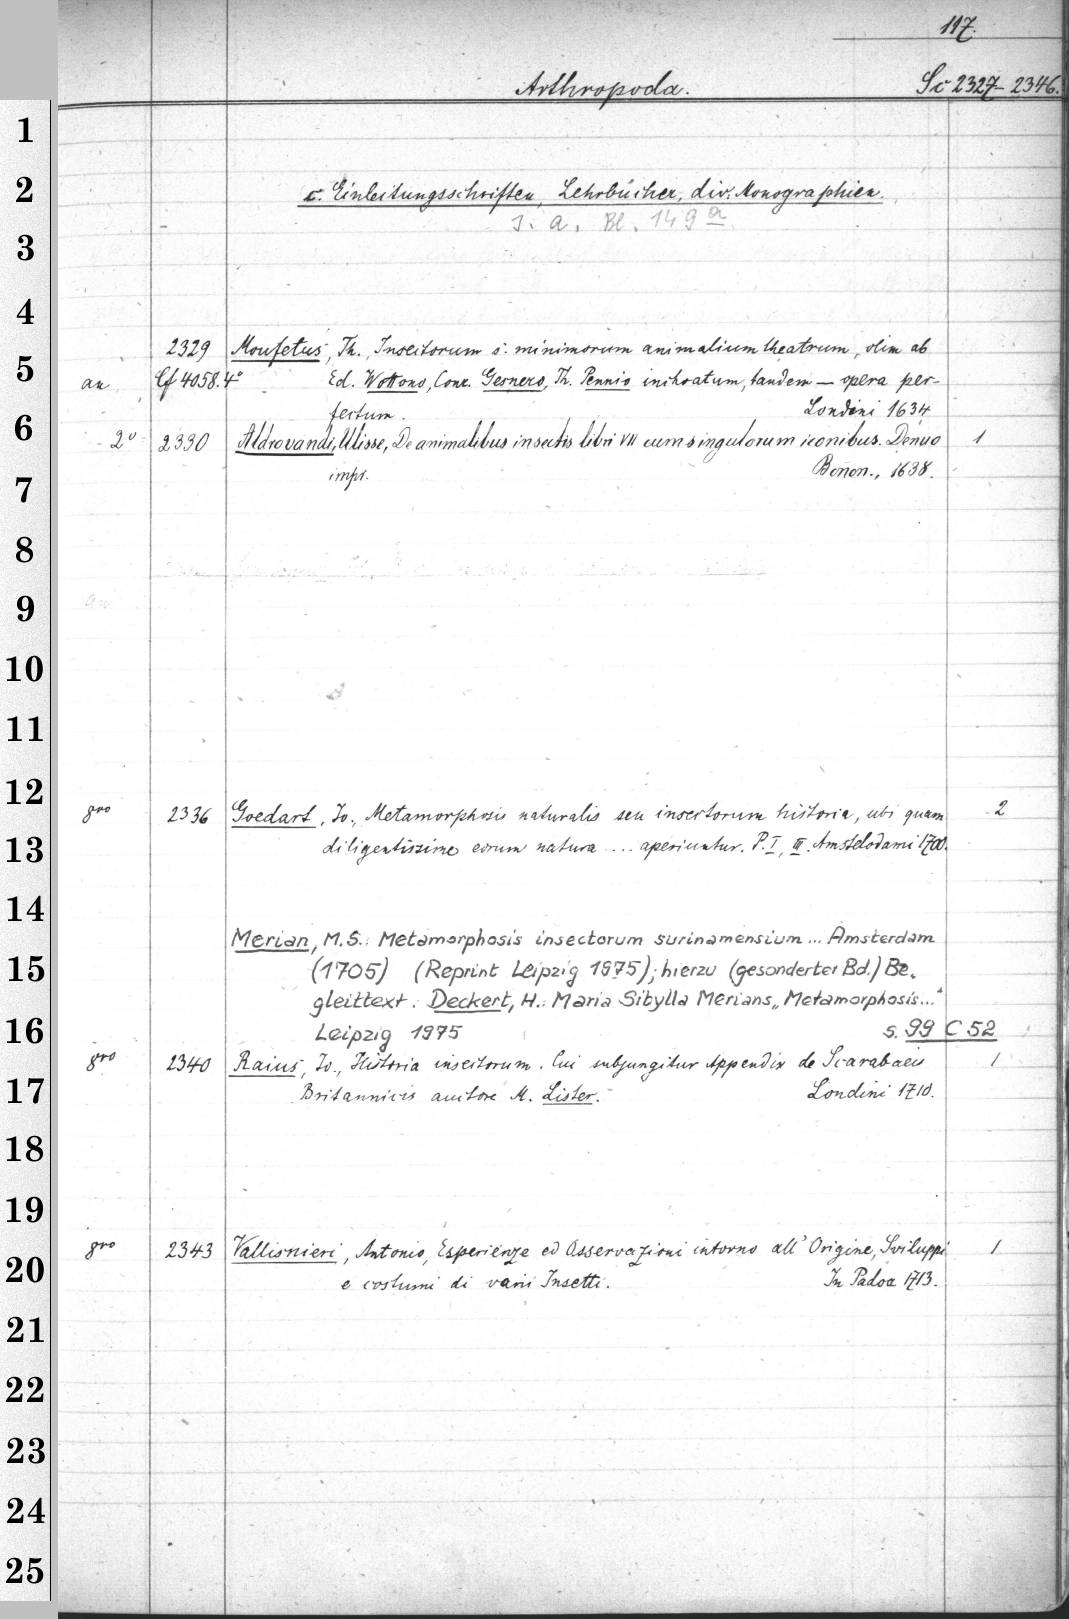 117.
Arthropoda. Sc 2327-2346.
1
2 c. Einleitungsschriften, Lehrbücher, div. Monographien.
s. a. Bl. 149a.
3
4
2329 Moufetus, Th., Insectorum s. minimorum animalium theatrum, olim ab
5 an Cf 4058.4° Ed. Wottono, Conr. Gesnero, Th. Pennio inchoatum, tandem — opera per-
fectum. Londini 1634
6 2° 2330 Aldrovandi, Ulisse, De animalibus insectis libri VII cum singulorum iconibus. Denuo 1
impr. Bonon., 1638.
7
8
9 an
10
11
12
8vo 2336 Goedart, Jo., Metamorphosis naturalis seu insectorum historia, ubi quam 2
13 diligentissime eorum natura ... aperiuntur. P. I, III. Amstelodami 1700.
14
Merian, M.S.: Metamorphosis insectorum surinamensium ... Amsterdam
15 (1705) (Reprint Leipzig 1975); hierzu (gesonderter Bd.) Be-
gleittext: Deckert, H.: Maria Sibylla Merians „Metamorphosis..."
16 Leipzig 1975 s. 99 C 52
8vo 2340 Raius, Jo., Historia insectorum. Cui subjungitur Appendix de Scarabaeis 1
17 Britannicis auctore M. Lister. Londini 1710.
18
19
8vo 2343 Vallisnieri, Antonio, Esperienze ed Osservazioni intorno all' Origine, Sviluppi 1
20 e costumi di varii Insetti. In Padoa 1713.
21
22
23
24
25